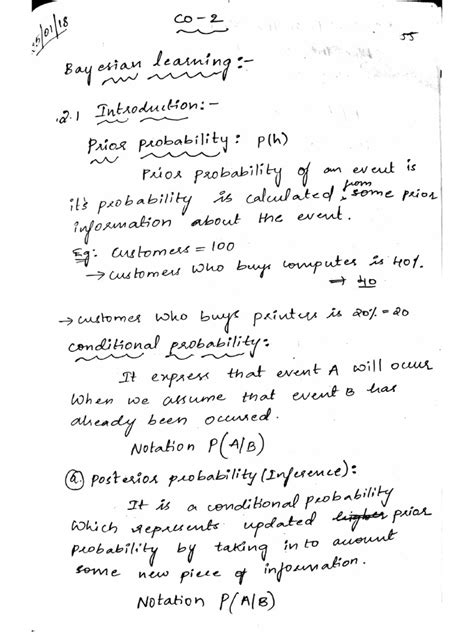 25/01/18
CO-2
55
Bayesian learning:-
2.1 Introduction:-
Prior probability: P(h)
Prior probability of an event is
it's probability is calculated from some prior
information about the event.
Eg: Customers = 100
→ customers who buys computer is 40%.
→ 40
→ customer who buys printers is 20% = 20
conditional probability:
It express that event A will occur
when we assume that event B has
already been occured.
Notation P(A/B)
a. Posterior probability (Inference):
It is a conditional probability
which represents updated higher prior
probability by taking in to account
some new piece of information.
Notation P(A/B)